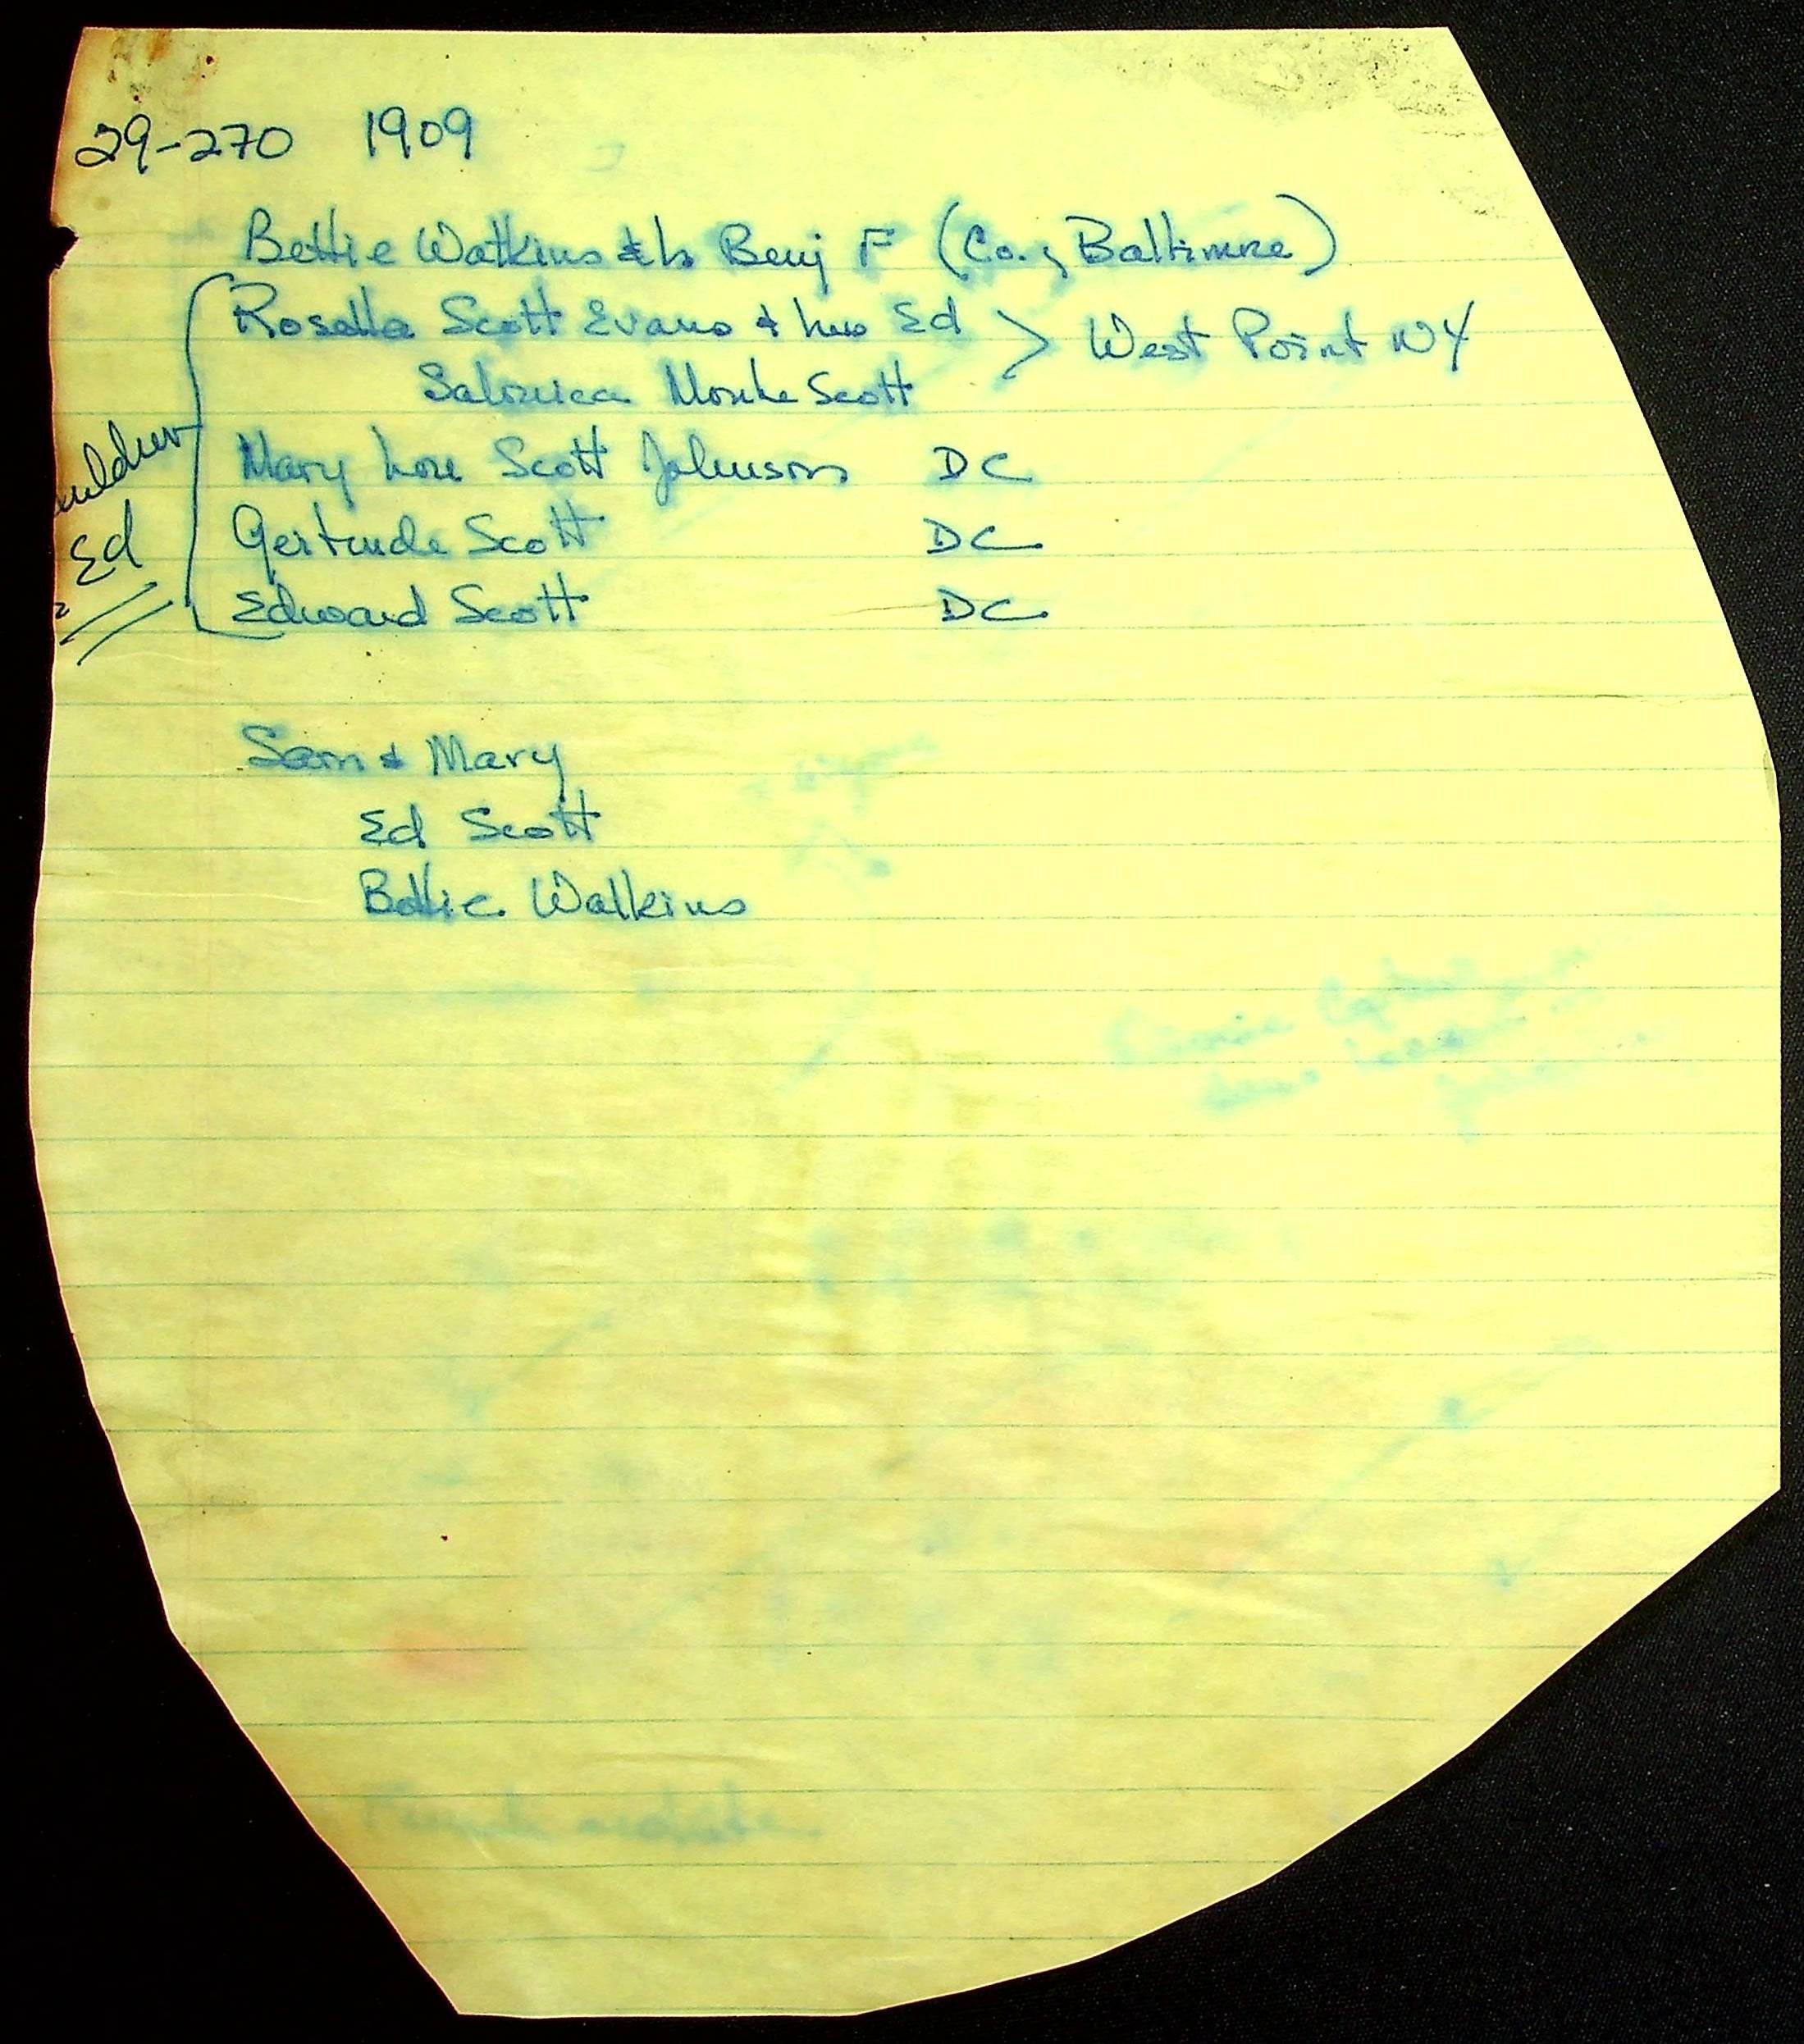 29-270 1909
Bettie Watkins & h Benj F (Co. of Baltimore)
Rosella Scott Evans & hus Ed > West Point NY
Scott
Mary Lou Scott Johnson DC
Gertrude Scott DC
Edward Scott DC
Ed
Sam & Mary
Ed Scott
Bettie Watkins